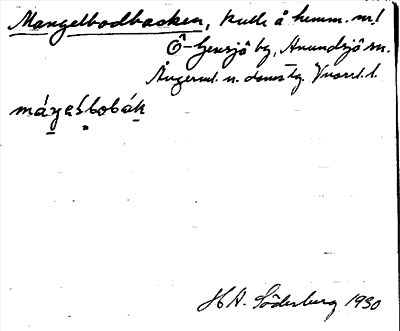 Mangelbodbacken, kulle å hemm. nr 1
Ö-Gensjö by, Anundsjö sn.
Ångerml. n. doms tg. Vnorrl. l.
máŋelbobák
H A. Söderberg 1930